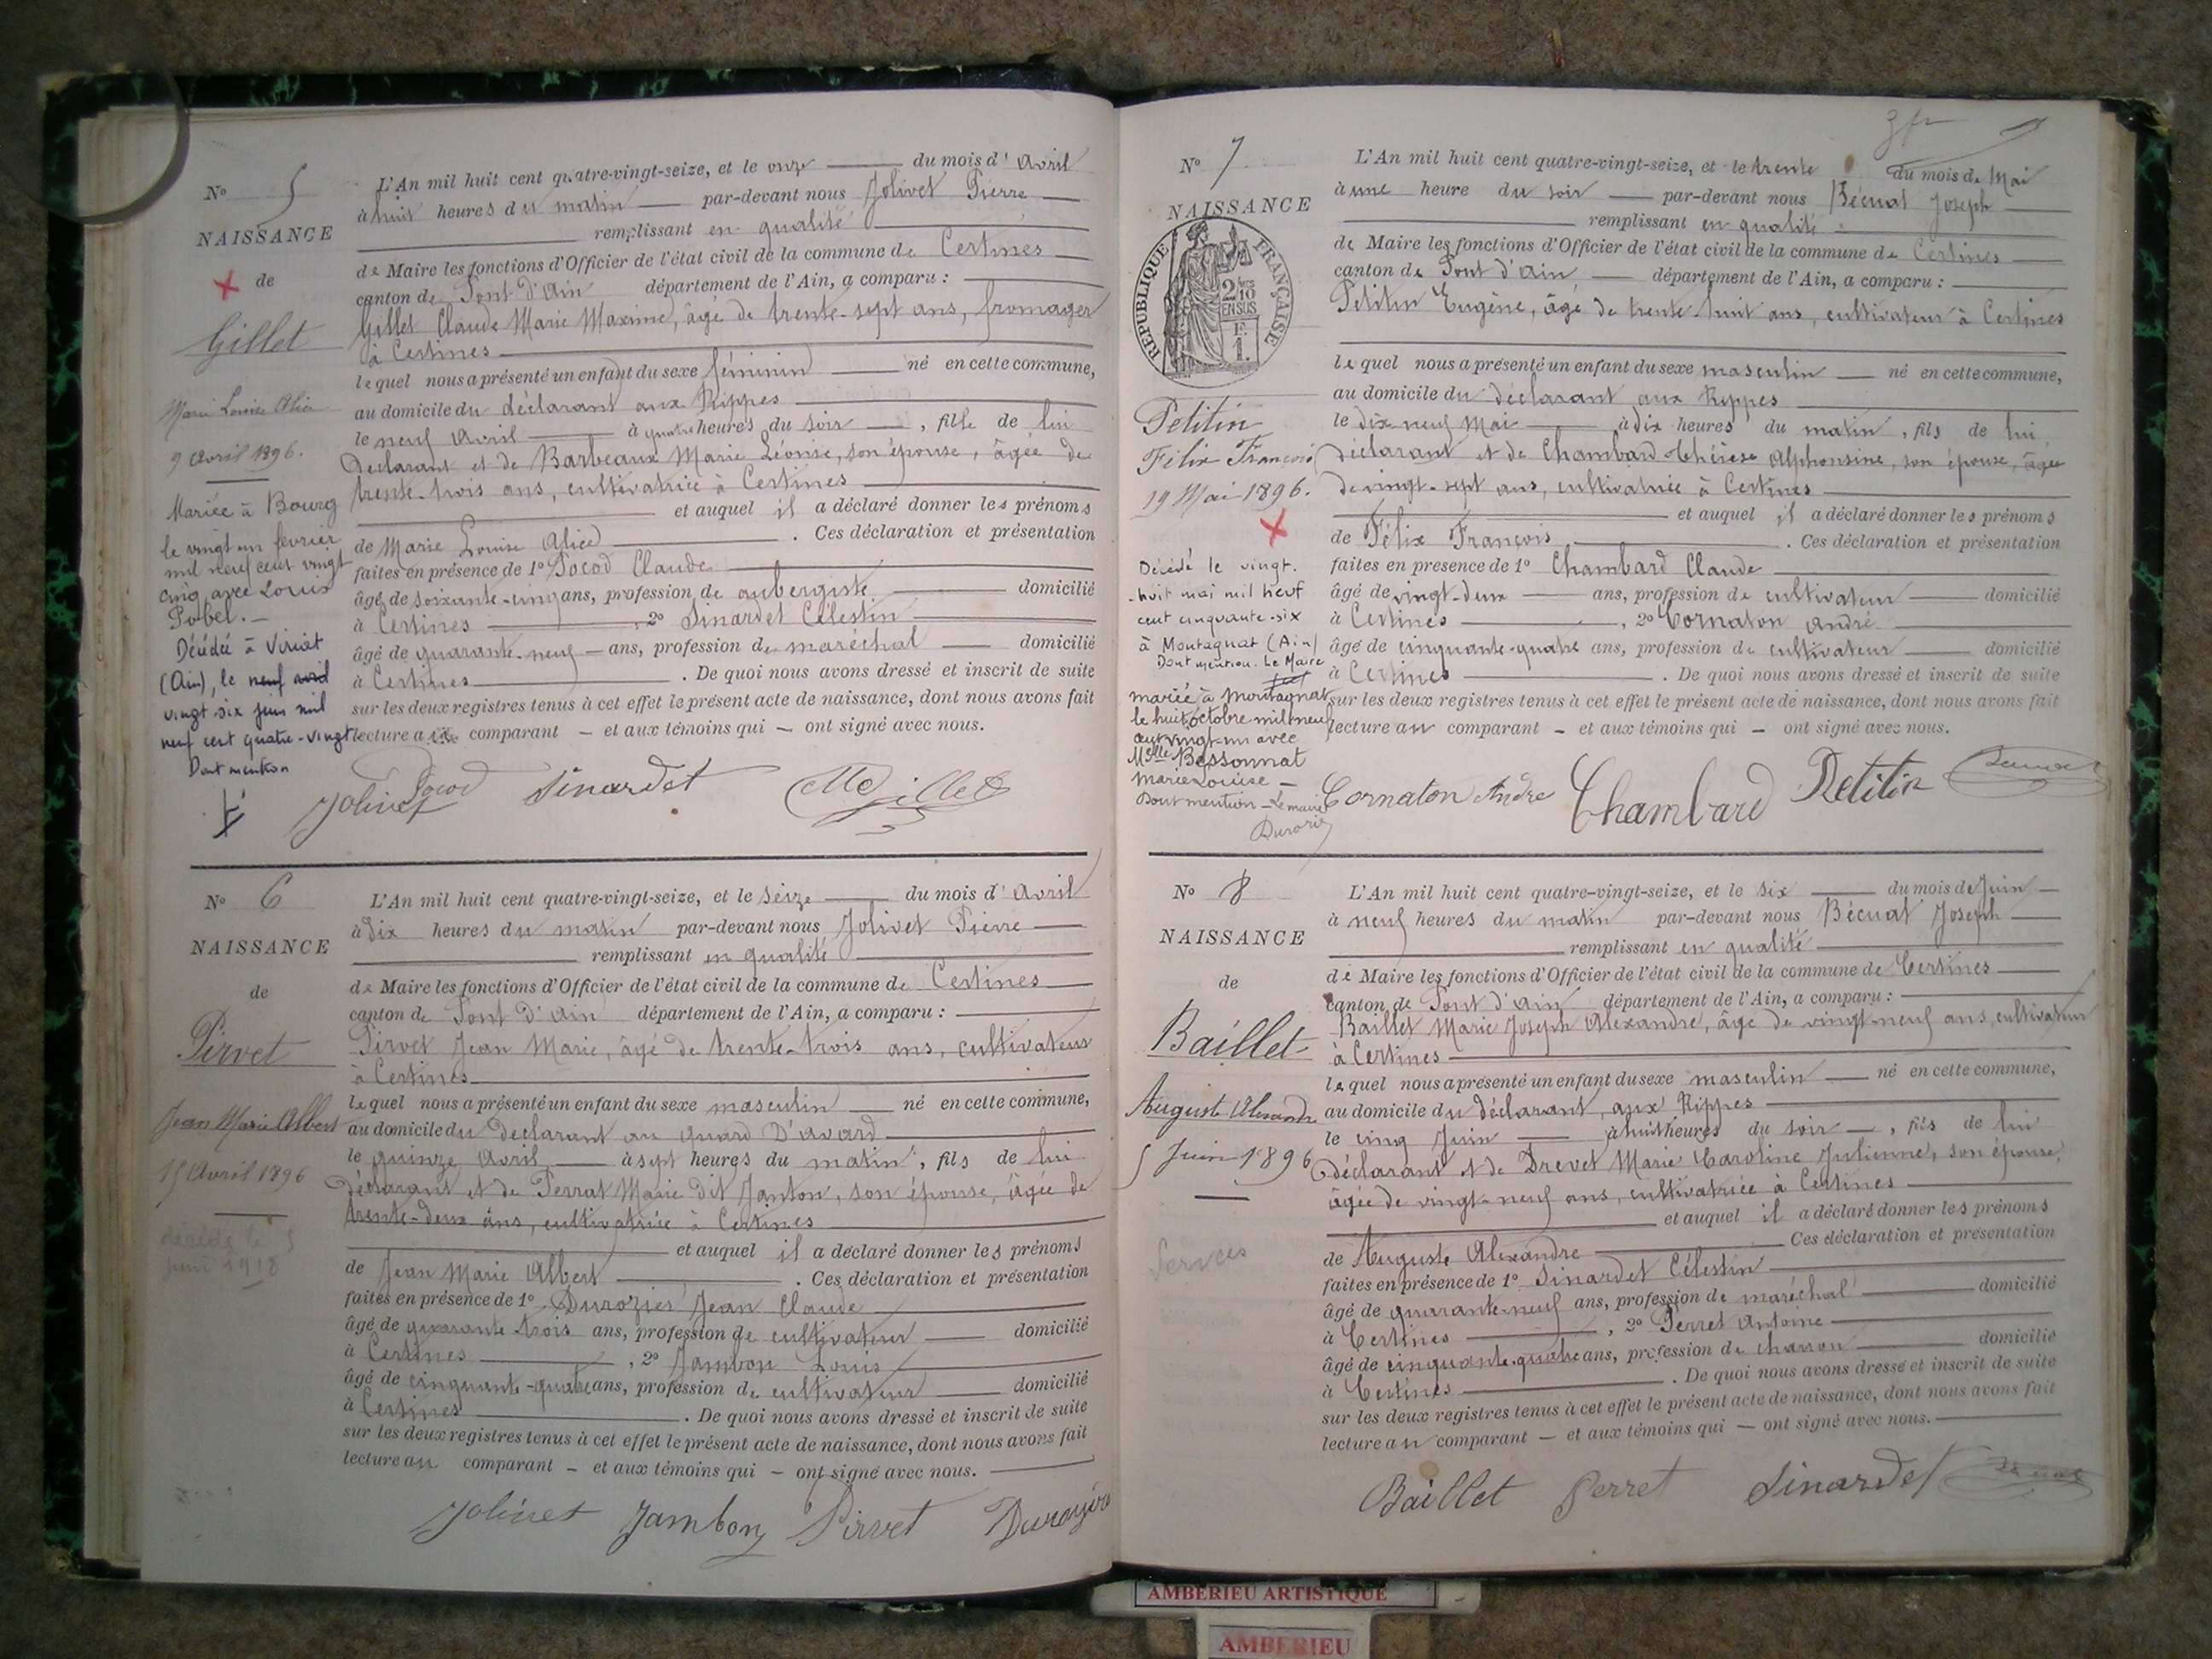 N° 5
NAISSANCE
de
Gillet
Marie Louise Alice
9 Avril 1896.
Mariée à Bourg
le vingt un février
mil neuf cent vingt
cinq avec Louis
Pobel. -
Décédée à Viriat
(Ain), le neuf avril
vingt-six juin mil
neuf cent quatre-vingt
Dont mention
L'An mil huit cent quatre-vingt-seize, et le onze du mois d'Avril
à huit heures du matin par-devant nous Jolivet Pierre
remplissant en qualité
de Maire les fonctions d'Officier de l'état civil de la commune de Certines
canton de Pont d'Ain département de l'Ain, a comparu :
Gillet Claude Marie Maxime, âgé de trente-sept ans, fromager
à Certines
lequel nous a présenté un enfant du sexe féminin né en cette commune,
au domicile du déclarant aux Rippes
le neuf Avril à quatre heures du soir, fille de lui
Déclarant et de Barbeaux Marie Léonise, son épouse, âgée de
trente-trois ans, cultivatrice à Certines
et auquel il a déclaré donner les prénoms
de Marie Louise Alice. Ces déclaration et présentation
faites en présence de 1° Pocod Claude
âgé de soixante-cinq ans, profession de aubergiste domicilié
à Certines, 2° Sinardet Célestin
âgé de quarante-neuf ans, profession de maréchal domicilié
à Certines. De quoi nous avons dressé et inscrit de suite
sur les deux registres tenus à cet effet le présent acte de naissance, dont nous avons fait
lecture au comparant - et aux témoins qui - ont signé avec nous.
Jolivet Pocod Sinardet Gillet
N° 6
NAISSANCE
de
Pirvet
Jean Marie Albert
15 Avril 1896
décédé le 5
juin 1918
L'An mil huit cent quatre-vingt-seize, et le seize du mois d'Avril
à dix heures du matin par-devant nous Jolivet Pierre
remplissant en qualité
de Maire les fonctions d'Officier de l'état civil de la commune de Certines
canton de Pont d'Ain département de l'Ain, a comparu :
Pirvet Jean Marie, âgé de trente-trois ans, cultivateur
à Certines
lequel nous a présenté un enfant du sexe masculin né en cette commune,
au domicile du Déclarant au quard D'avard
le quinze Avril à sept heures du matin, fils de lui
Déclarant et de Perrat Marie dit Janton, son épouse, âgée de
trente-deux ans, cultivatrice à Certines
et auquel il a déclaré donner les prénoms
de Jean Marie Albert. Ces déclaration et présentation
faites en présence de 1° Durozier Jean Claude
âgé de quarante-trois ans, profession de cultivateur domicilié
à Certines, 2° Jambon Louis
âgé de cinquante-quatre ans, profession de cultivateur domicilié
à Certines. De quoi nous avons dressé et inscrit de suite
sur les deux registres tenus à cet effet le présent acte de naissance, dont nous avons fait
lecture au comparant - et aux témoins qui - ont signé avec nous.
Jolivet Jambon Pirvet Durozier
N° 7
NAISSANCE
RÉPUBLIQUE FRANÇAISE
2/10
EN SUS
E.
1.
Petitin
Félix François
19 Mai 1896.
Décédé le vingt-
-huit mai mil neuf
cent cinquante-six
à Montagnat (Ain)
Dont mention. Le Maire
mariée à Montagnat
le huit octobre mil neuf
cent vingt-un avec
Melle Bessonnat
Marie Louise -
Dont mention - Le maire
Durozier
L'An mil huit cent quatre-vingt-seize, et le trente du mois de Mai
à une heure du soir par-devant nous Bécuat Joseph
remplissant en qualité
de Maire les fonctions d'Officier de l'état civil de la commune de Certines
canton de Pont d'Ain département de l'Ain, a comparu :
Petitin Eugène, âgé de trente-huit ans, cultivateur à Certines
lequel nous a présenté un enfant du sexe masculin né en cette commune,
au domicile du déclarant aux Rippes
le dix-neuf Mai à dix heures du matin, fils de lui
Déclarant et de Chambard Thérèse Alphonsine, son épouse, âgée
de vingt-sept ans, cultivatrice à Certines
et auquel il a déclaré donner les prénoms
de Félix François. Ces déclaration et présentation
faites en présence de 1° Chambard Claude
âgé de vingt-deux ans, profession de cultivateur domicilié
à Certines, 2° Cornaton André
âgé de cinquante-quatre ans, profession de cultivateur domicilié
à Certines. De quoi nous avons dressé et inscrit de suite
sur les deux registres tenus à cet effet le présent acte de naissance, dont nous avons fait
lecture au comparant - et aux témoins qui - ont signé avec nous.
Cornaton André Chambard Petitin
N° 8
NAISSANCE
de
Baillet
Auguste Alexandre
5 Juin 1896
L'An mil huit cent quatre-vingt-seize, et le six du mois de Juin
à neuf heures du matin par-devant nous Bécuat Joseph
remplissant en qualité
de Maire les fonctions d'Officier de l'état civil de la commune de Certines
canton de Pont d'Ain département de l'Ain, a comparu :
Baillet Marie Joseph Alexandre, âgé de vingt-neuf ans, cultivateur
à Certines
lequel nous a présenté un enfant du sexe masculin né en cette commune,
au domicile du déclarant, aux Rippes
le cinq Juin à huit heures du soir, fils de lui
déclarant et de Drevet Marie Caroline Julienne, son épouse,
âgée de vingt-neuf ans, cultivatrice à Certines
et auquel il a déclaré donner les prénoms
de Auguste Alexandre Ces déclaration et présentation
faites en présence de 1° Sinardet Célestin
âgé de quarante-neuf ans, profession de maréchal domicilié
à Certines, 2° Perret Antoine
âgé de cinquante-quatre ans, profession de charron domicilié
à Certines. De quoi nous avons dressé et inscrit de suite
sur les deux registres tenus à cet effet le présent acte de naissance, dont nous avons fait
lecture au comparant - et aux témoins qui - ont signé avec nous.
Baillet Perret Sinardet
AMBERIEU ARTISTIQUE
AMBERIEU